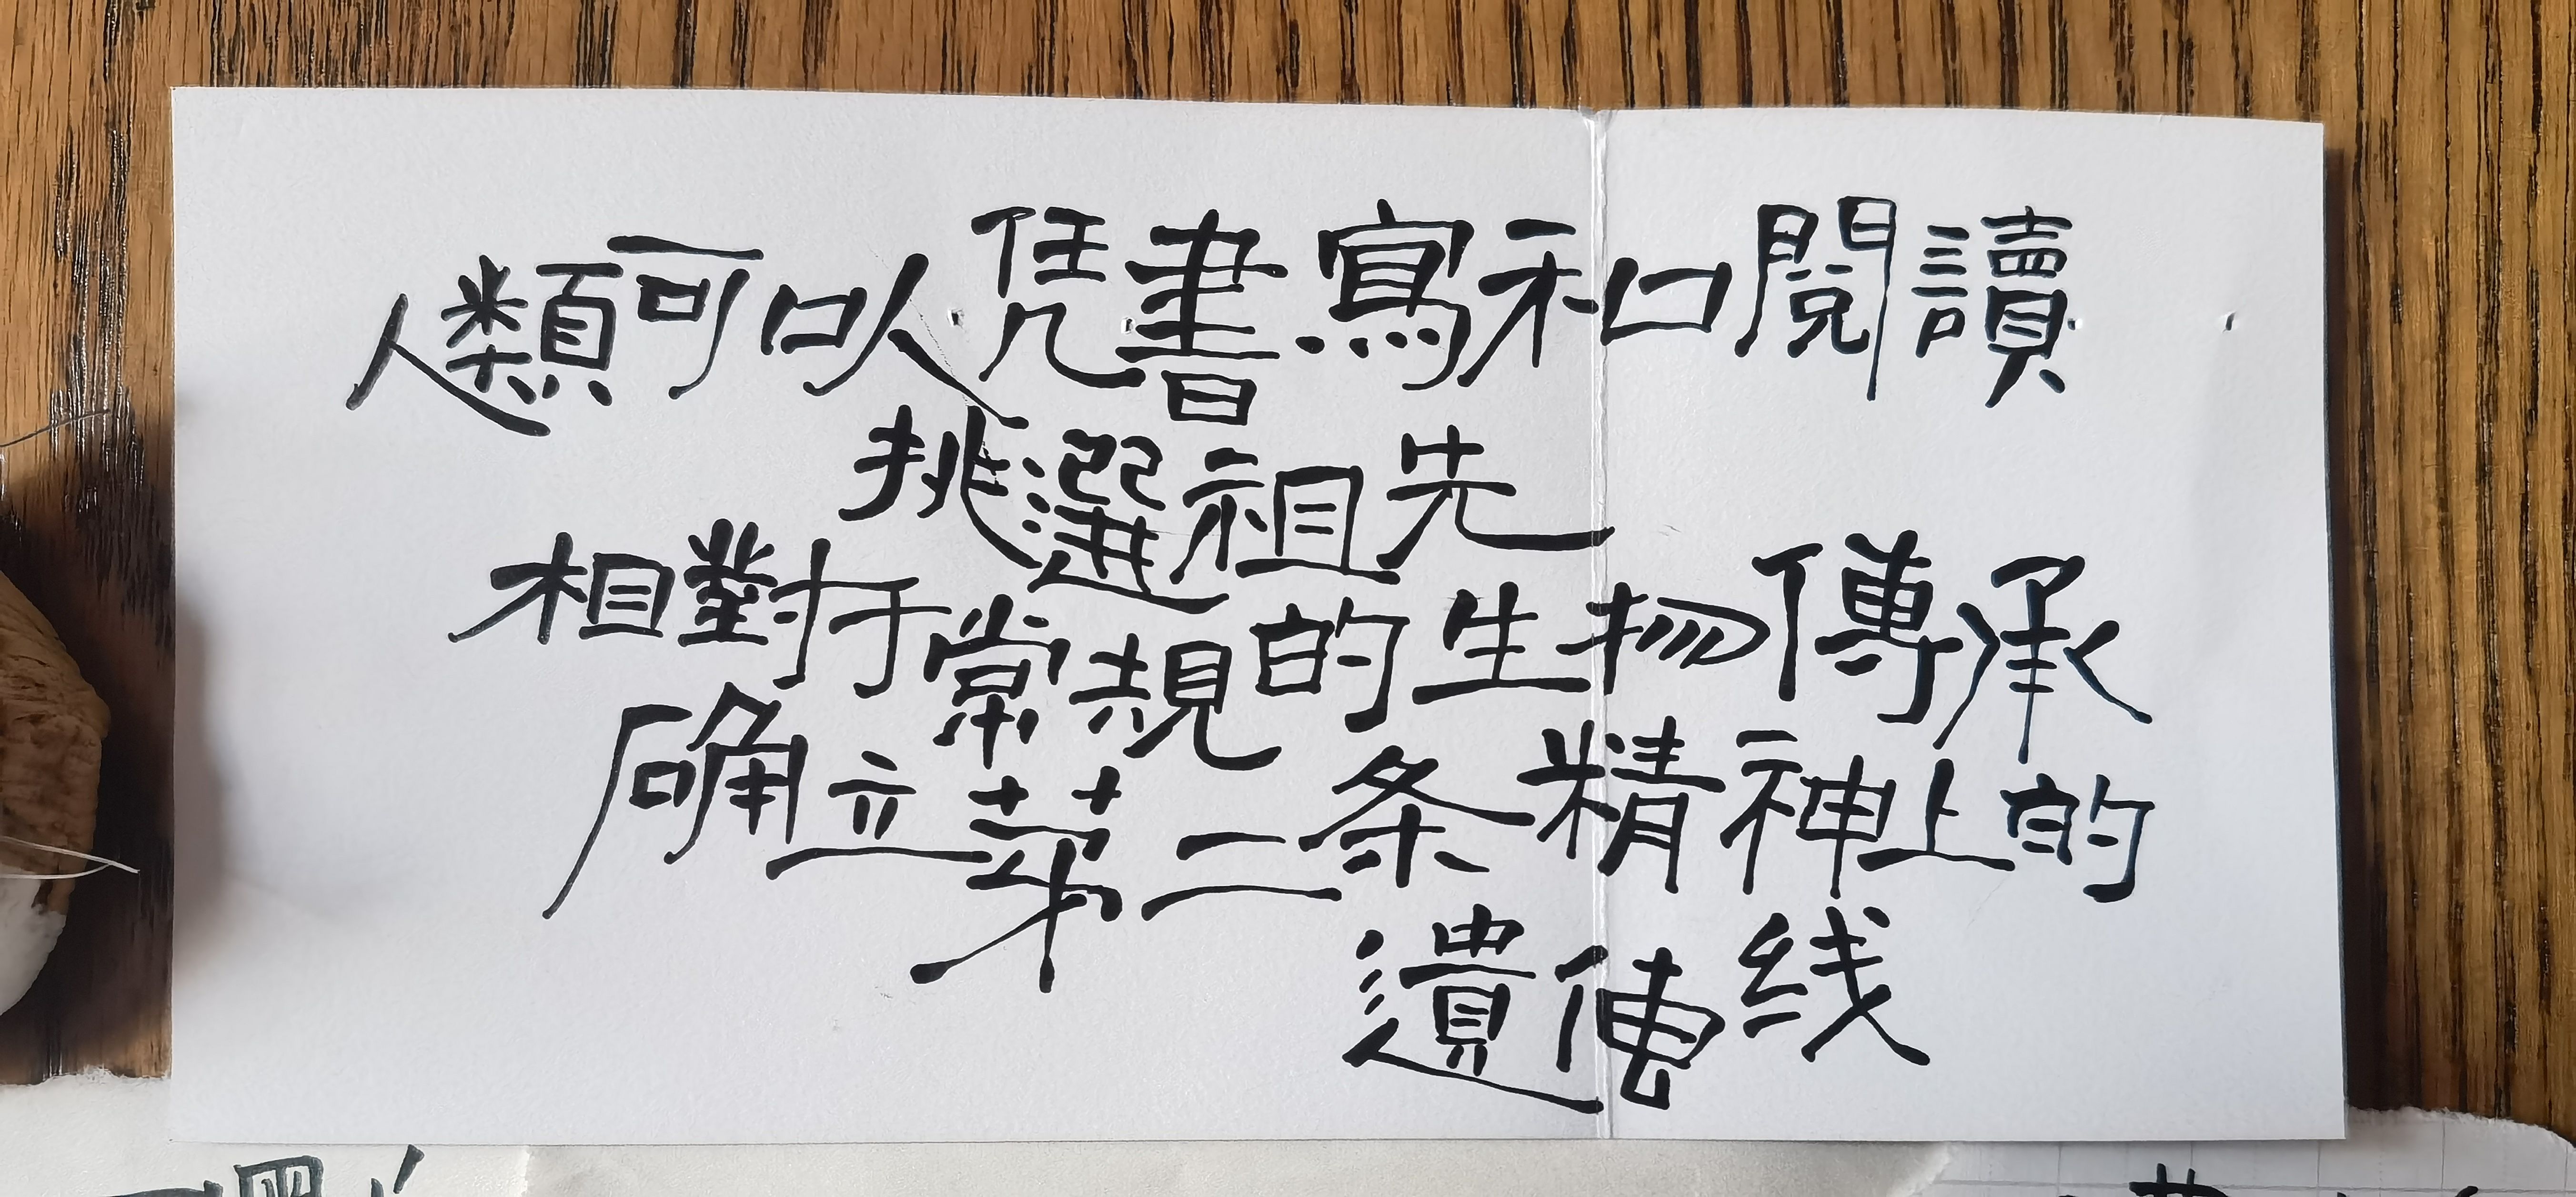 人類可以凭書寫和閲讀
挑選祖先
相對于常規的生物傳承
确立第二条精神上的
遺傳线